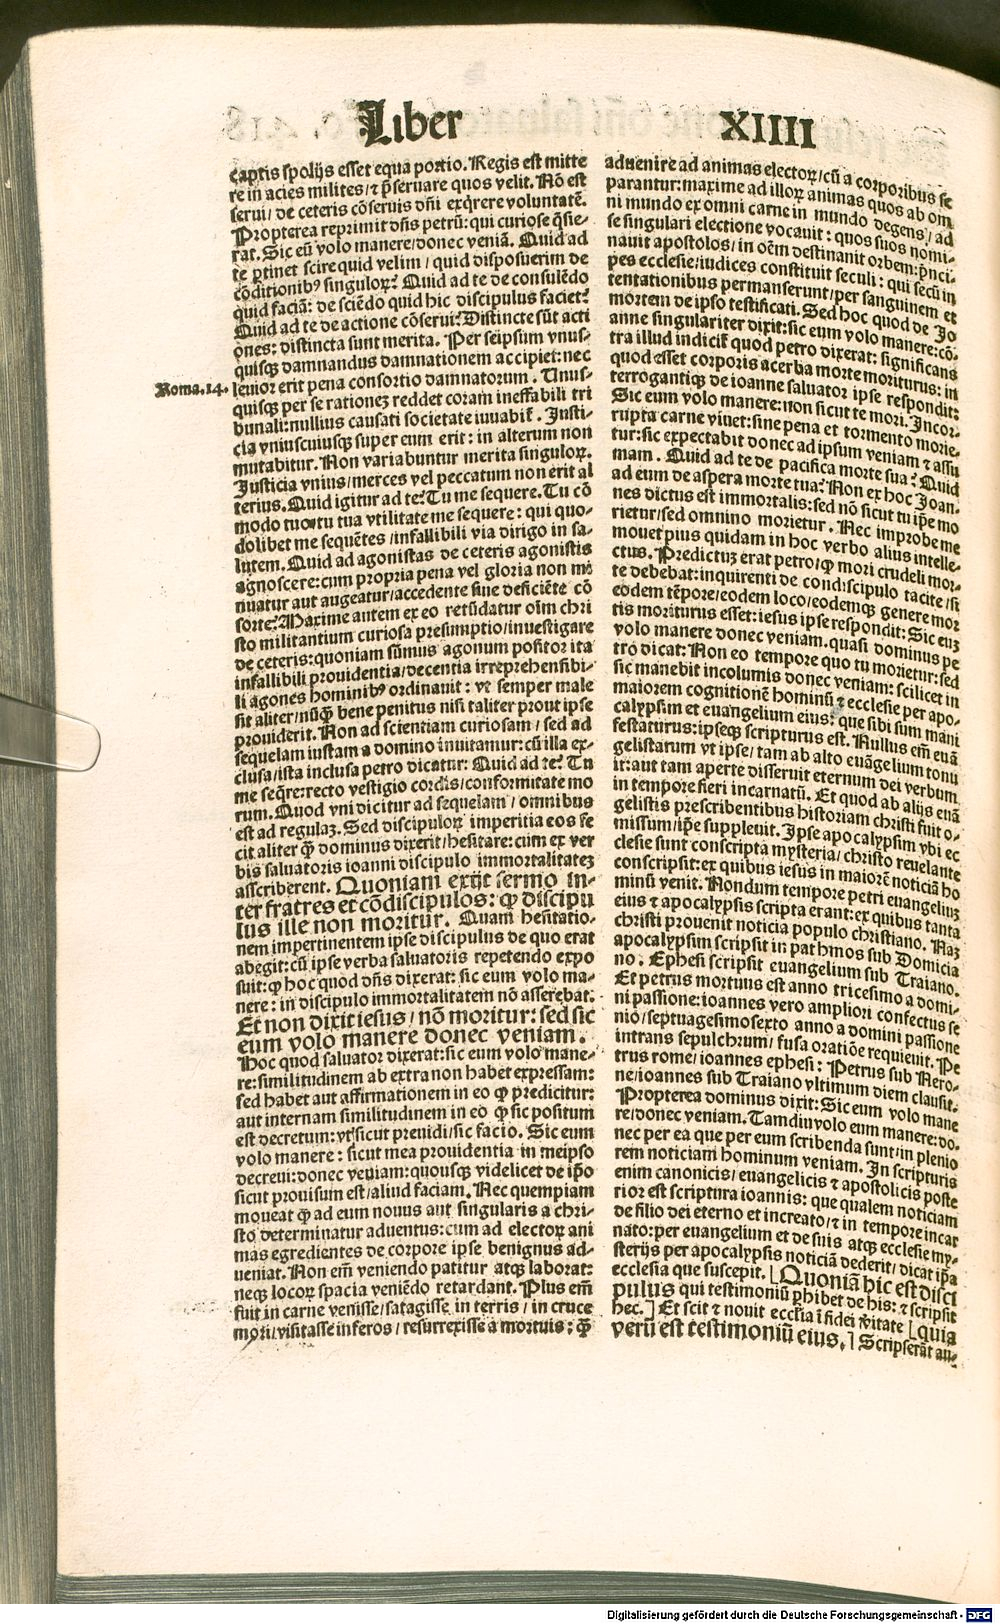 Liber XIIII
captis spolijs esset equa portio. Regis est mitte
re in acies milites/ ⁊ p̄seruare quos velit. Nō est
serui/ de ceteris cōseruis dn̄i exq̄rere voluntatē.
Propterea reprimit dn̄s petrū: qui curiose q̄sie-
rat. Sic eū volo manere/ donec veniā. Quid ad
te ꝑtinet scire quid velim/ quid disposuerim de
cōditionibꝰ singuloꝝ? Quid ad te de consulēdo
quid faciā: de sciēdo quid hic discipulus faciet?
Quid ad te de actione cōserui? Distincte sūt acti
ones: distincta sunt merita. Per seipsum vnus-
quisqꝫ damnandus damnationem accipiet: nec
Roma.14. leuior erit pena consortio damnatorum. Unus-
quisqꝫ per se rationeꝫ reddet coram ineffabili tri
bunali: nullius causati societate iuuabit̄. Justi-
cia vniuscuiusqꝫ super eum erit: in alterum non
mutabitur. Non variabuntur merita singuloꝝ.
Justicia vnius/ merces vel peccatum non erit al
terius. Quid igitur ad te? Tu me sequere. Tu cō
modo tuo/ tu tua vtilitate me sequere: qui quo-
dolibet me sequētes/ infallibili via dirigo in sa-
lutem. Quid ad agonistas de ceteris agonistis
agnoscere: cum propria pena vel gloria non mi
nuatur aut augeatur/ accedente siue deficiēte cō
sorte? Maxime autem ex eo retūdatur oīm chri
sto militantium curiosa presumptio/ inuestigare
de ceteris: quoniam sūmus agonum positor ita
infallibili prouidentia/ decentia irreprehensibi-
li agones hominibꝰ ordinauit: vt semper male
sit aliter/ nūꝙ̄ bene penitus nisi taliter prout ipse
prouiderit. Non ad scientiam curiosam/ sed ad
sequelam iustam a domino inuitamur: cū illa ex-
clusa/ ista inclusa petro dicatur: Quid ad te? Tu
me seq̄re: recto vestigio cordis/ conformitate mo
rum. Quod vni dicitur ad sequelam/ omnibus
est ad regulaꝫ. Sed discipuloꝝ imperitia eos fe
cit aliter ꝙ̄ dominus dixerit/ hesitare: cum ex ver
bis saluatoris ioanni discipulo immortalitateꝫ
asscriberent. Quoniam exijt sermo in-
ter fratres et cōdiscipulos: ꝙ discipu
lus ille non moritur. Quam hesitatio-
nem impertinentem ipse discipulus de quo erat
abegit: cū ipse verba saluatoris repetendo expo
suit: ꝙ hoc quod dn̄s dixerat: sic eum volo ma-
nere: in discipulo immortalitatem nō asserebat.
Et non dixit iesus/ nō moritur: sed sic
eum volo manere donec veniam.
Hoc quod saluator dixerat: sic eum volo mane-
re: similitudinem ab extra non habet expressam:
sed habet aut affirmationem in eo ꝙ predicitur:
aut internam similitudinem in eo ꝙ sic positum
est decretum: vt sicut preuidi/ sic facio. Sic eum
volo manere: sicut mea prouidentia in meipso
decreui: donec veniam: quousqꝫ videlicet de ip̄o
sicut prouisum est/ aliud faciam. Nec quempiam
moueat ꝙ ad eum nouus aut singularis a chri-
sto determinatur aduentus: cum ad electoꝝ ani
mas egredientes de corpore ipse benignus ad-
ueniat. Non em̄ veniendo patitur atqꝫ laborat:
neqꝫ locoꝝ spacia veniēdo retardant. Plus em̄
fuit in carne venisse/ satagisse in terris/ in cruce
mori/ visitasse inferos/ resurrexisse a mortuis: ꝙ̄
aduenire ad animas electoꝝ/ cū a corporibus se
parantur: maxime ad illoꝝ animas quos ab om
ni mundo ex omni carne in mundo degens/ ad
se singulari electione vocauit: quos suos nomi-
nauit apostolos/ in oēm destinauit orbem: p̄nci-
pes ecclesie/ iudices constituit seculi: qui secū in
tentationibus permanserunt/ per sanguinem et
mortem de ipso testificati. Sed hoc quod de Jo
anne singulariter dixit: sic eum volo manere: cō-
tra illud indicit̄ quod petro dixerat: significans
quod esset corporis acerba morte moriturus: in
terrogantiqꝫ de ioanne saluator ipse respondit:
Sic eum volo manere: non sicut te mori. Incor-
rupta carne viuet: sine pena et tormento morie-
tur: sic expectabit donec ad ipsum veniam ⁊ assu
mam. Quid ad te de pacifica morte sua? Quid
ad eum de aspera morte tua? Non ex hoc Joan-
nes dictus est immortalis: sed nō sicut tu ip̄e mo
rietur/ sed omnino morietur. Nec improbe me
mouet pius quidam in hoc verbo alius intelle-
ctus. Predictuꝫ erat petro/ ꝙ mori crudeli mor-
te debebat: inquirenti de condiscipulo tacite/ si
eodem tēpore/ eodem loco/ eodemqꝫ genere mor
tis moriturus esset: iesus ipse respondit: Sic euꝫ
volo manere donec veniam. quasi dominus pe
tro dicat: Non eo tempore quo tu morietur: sed
sic manebit incolumis donec veniam: scilicet in
maiorem cognitionē hominū ⁊ ecclesie per apo-
calypsim et euangelium eius: que sibi sum mani
festaturus: ipseqꝫ scripturus est. Nullus em̄ euā
gelistarum vt ipse/ tam ab alto euāgelium tonu
it: aut tam aperte disseruit eternum dei verbum
in tempore fieri incarnatū. Et quod ab alijs euā
gelistis prescribentibus historiam christi fuit o-
missum/ ip̄e suppleuit. Ipse apocalypsim vbi ec
clesie sunt conscripta mysteria/ christo reuelante
conscripsit: ex quibus iesus in maiorē noticiā ho
minū venit. Nondum tempore petri euangeliuꝫ
eius ⁊ apocalypsis scripta erant: ex quibus tanta
christi prouenit noticia populo christiano. Naꝫ
apocalypsim scripsit in pathmos sub Domicia
no. Ephesi scripsit euangelium sub Traiano.
Et petrus mortuus est anno tricesimo a domi-
ni passione: ioannes vero ampliori confectus se
nio/ septuagesimosexto anno a domini passione
intrans sepulchrum/ fusa oratiōe requieuit. Pe
trus rome/ ioannes ephesi: Petrus sub Nero-
ne/ ioannes sub Traiano vltimum diem clausit.
Propterea dominus dixit: Sic eum volo mane
re/ donec veniam. Tamdiu volo eum manere: do-
nec per ea que per eum scribenda sunt/ in plenio
rem noticiam hominum veniam. In scripturis
enim canonicis/ euangelicis ⁊ apostolicis poste
rior est scriptura ioannis: que qualem noticiam
de filio dei eterno et increato/ ⁊ in tempore incar
nato: per euangelium et de suis atqꝫ ecclesie my-
sterijs per apocalypsis noticiā dederit/ dicat ip̄a
ecclesia que suscepit. [Quoniā hic est disci
pulus qui testimoniū ꝑhibet de his: ⁊ scripsit
hec.] Et scit ⁊ nouit ecclīa ī fidei v̄itate [quia
verū est testimoniū eius.] Scripserāt au-
Digitalisierung gefördert durch die Deutsche Forschungsgemeinschaft - DFG